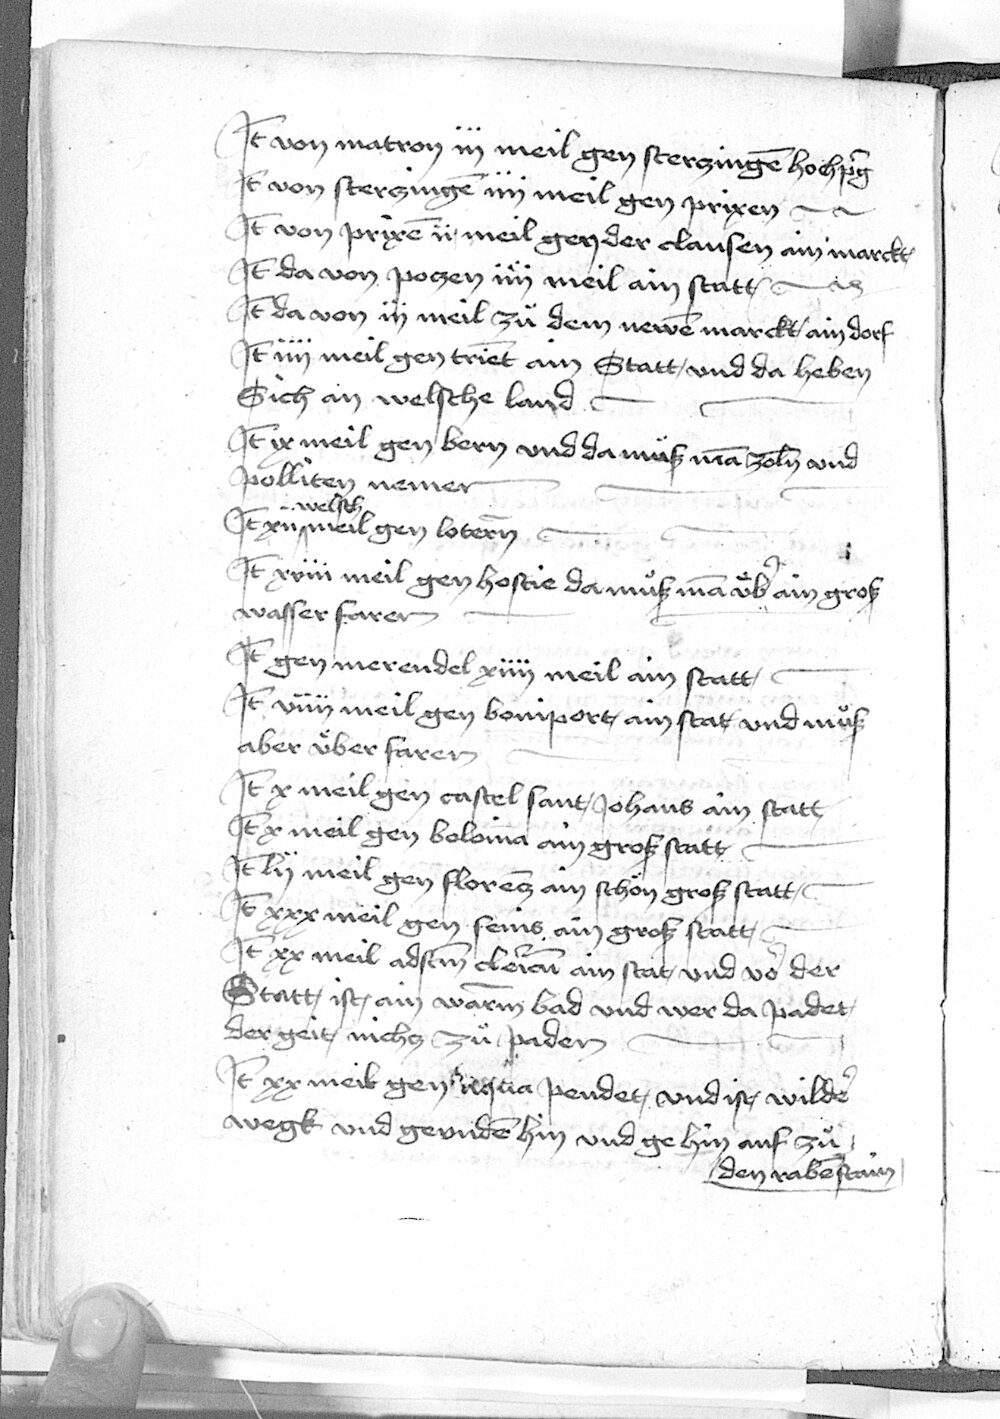 It von matron iij meil gen sterczingē hochp̄g
It von sterczingē iiij meil gen prixen
It von prixē ij meil gen der clausen ain marckt
It da von poczen iiij meil ain statt
It da von iij meil zů dem newē marckt ain dorf
It iiij meil gen triēt ain Statt und da heben
Sich an welsche land
It ix meil gen bern und da můsz mā zoln̄ und
polliten nemen
welsch
It xij meil gen lotern̄
It xviii meil gen hostie da můsz mā v̊b̾ ain grosz
wasser faren
It gen merendel xiiij meil ain statt
It viiij meil gen boniport ain stat und můsz
aber v̊ber faren
It x meil gen castel sant Johans ain statt
It x meil gen bolonia ain grosz statt
It lij meil gen florentz ain schön grosz statt
It xxx meil gen senis ain grosz statt
It xx meil ad ain stat und vo᷑ der
Statt ist ain warm bad und wer da padet
der geit nichs zů paden
It xx meil gen aqua pendet und ist wilde᷑
wegk und hin und ge hin auf zů
den rabēstain